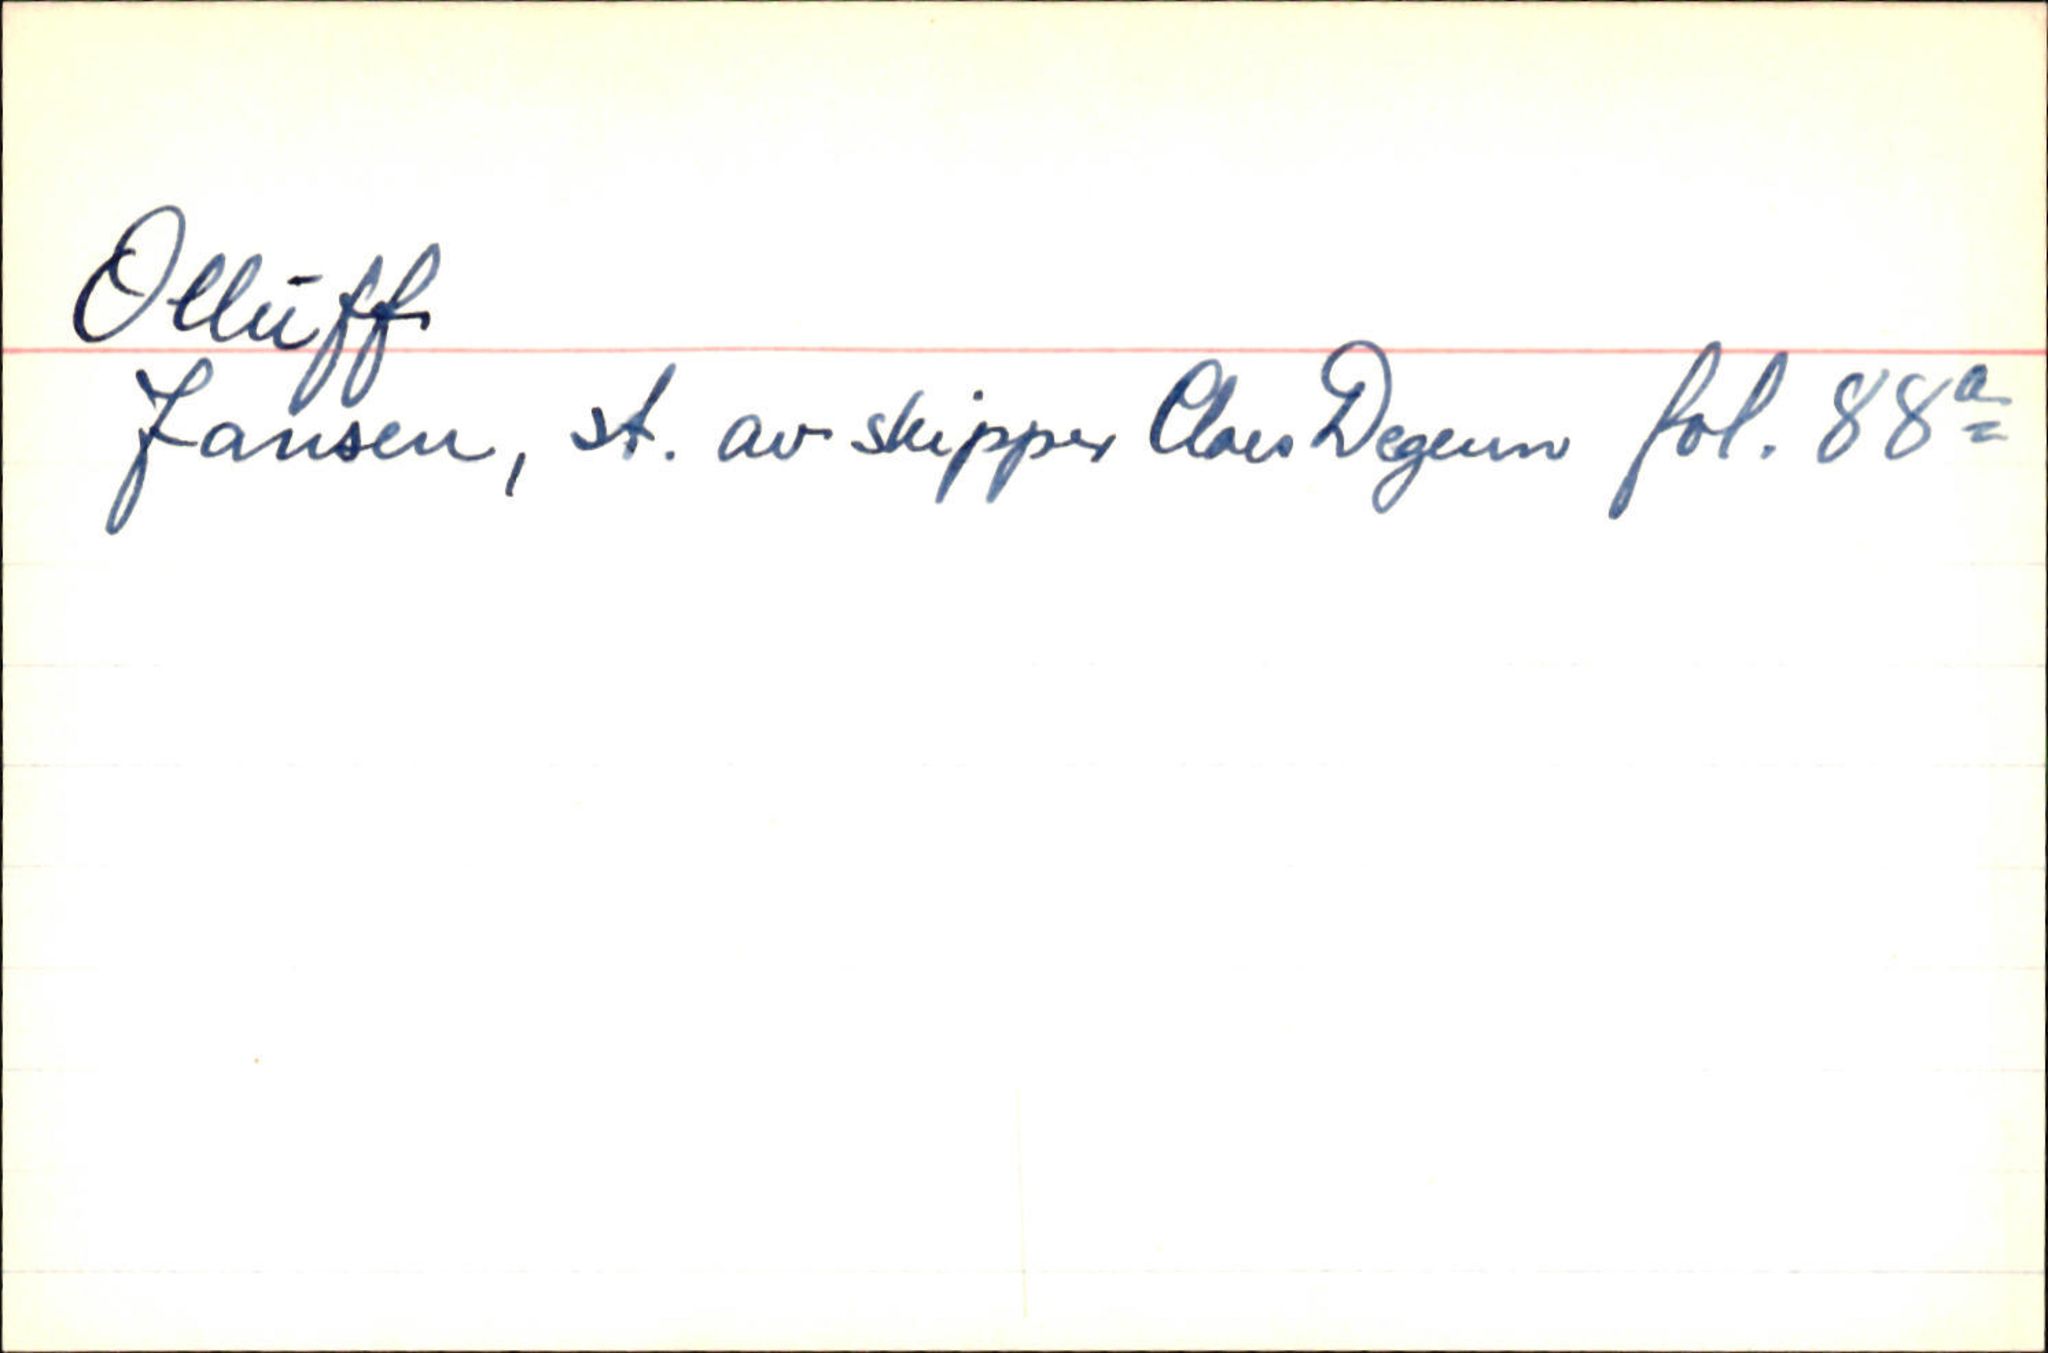 Ollúff
Jansen, st. av skipper Claes Degenn fol. 88a